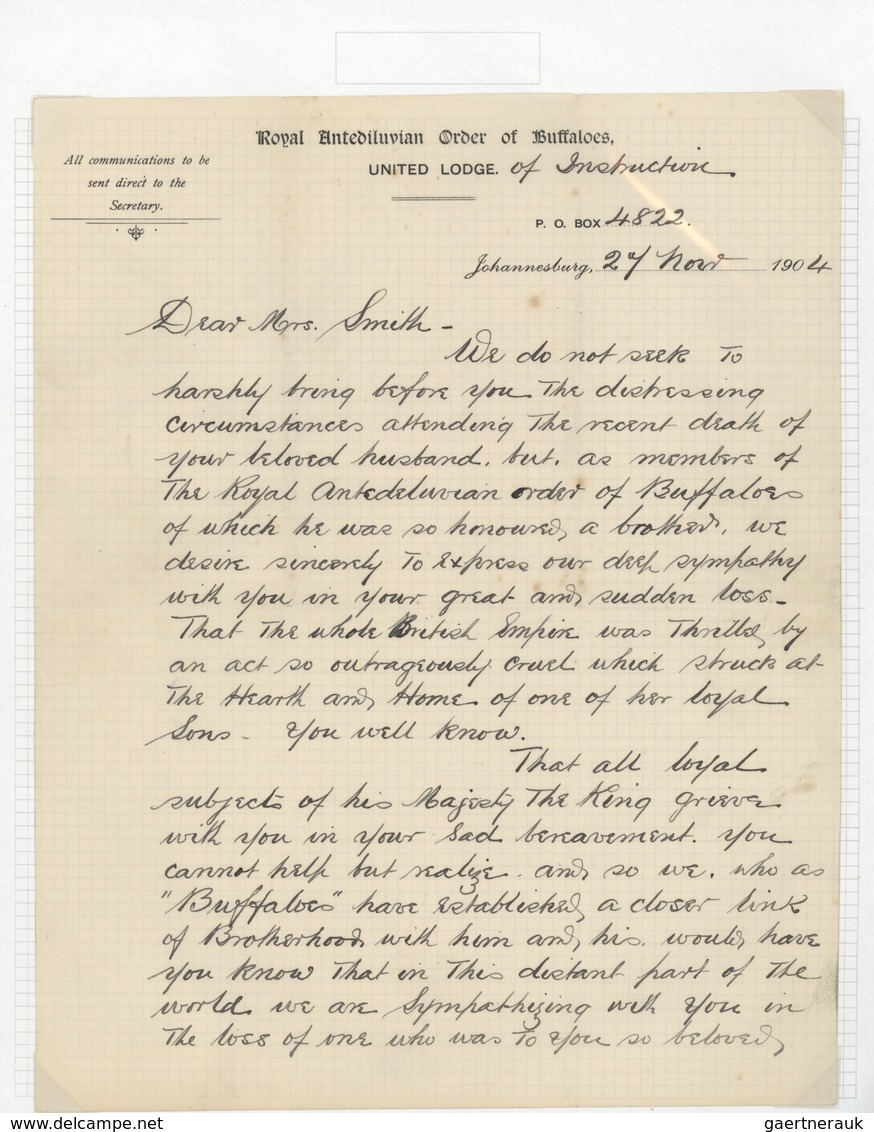 Royal Antediluvian Order of Buffaloes,
All communications to be
sent direct to the
Secretary.
UNITED LODGE. of Instruction
P. O. BOX 4822.
Johannesburg, 27 Novr 1904
Dear Mrs. Smith -
We do not seek to
harshly bring before you the distressing
circumstances attending the recent death of
your beloved husband. but. as members of
The Royal Antedeluvian order of Buffaloes
of which he was so honoured, a brother. we
desire sincerely to express our deep sympathy
with you in your great and sudden loss -
That the whole British Empire was thrilled by
an act so outrageously cruel which struck at
the Hearth and Home of one of her loyal
Sons - you well know.
That all loyal
subjects of his Majesty The King grieve
with you in your sad bereavement. you
cannot help but realize. and so we. who as
"Buffaloes" have established a closer link
of Brotherhood with him and his. would have
you know that in this distant part of the
world we are Sympathizing with you in
the loss of one who was to you so beloved
delcampe.net
gaertnerauk